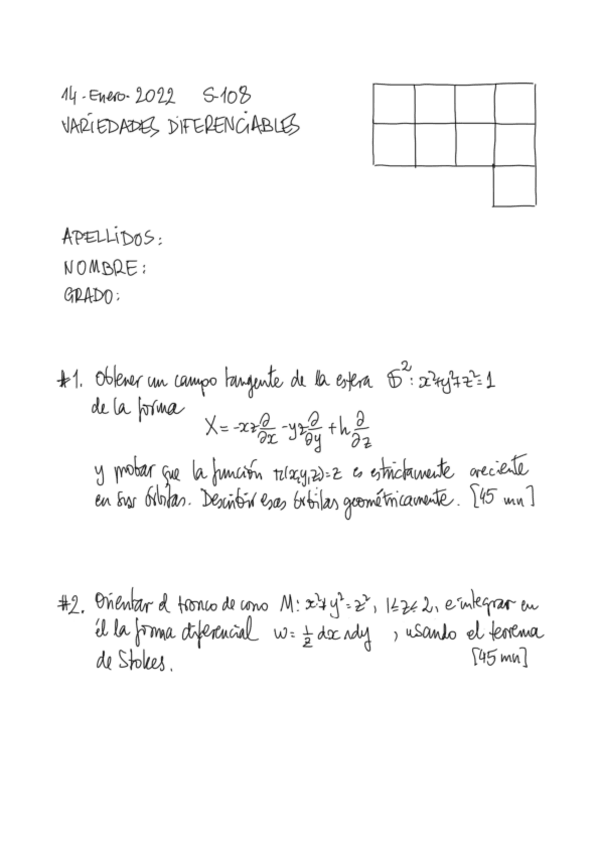 14-Enero-2022 S-108
VARIEDADES DIFERENCIABLES
APELLIDOS:
NOMBRE:
GRADO:
#1. Obtener un campo tangente de la esfera 𝕊²: x²+y²+z²=1
de la forma
X = -xz ∂/∂x - yz ∂/∂y + h ∂/∂z
y probar que la función π(x,y,z)=z es estrictamente creciente
en sus órbitas. Describir esas órbitas geométricamente. [45 mn]
#2. Orientar el tronco de cono M: x²+y²=z², 1≤z≤2, e integrar en
él la forma diferencial w = 1/z dx∧dy , usando el teorema
de Stokes. [45 mn]